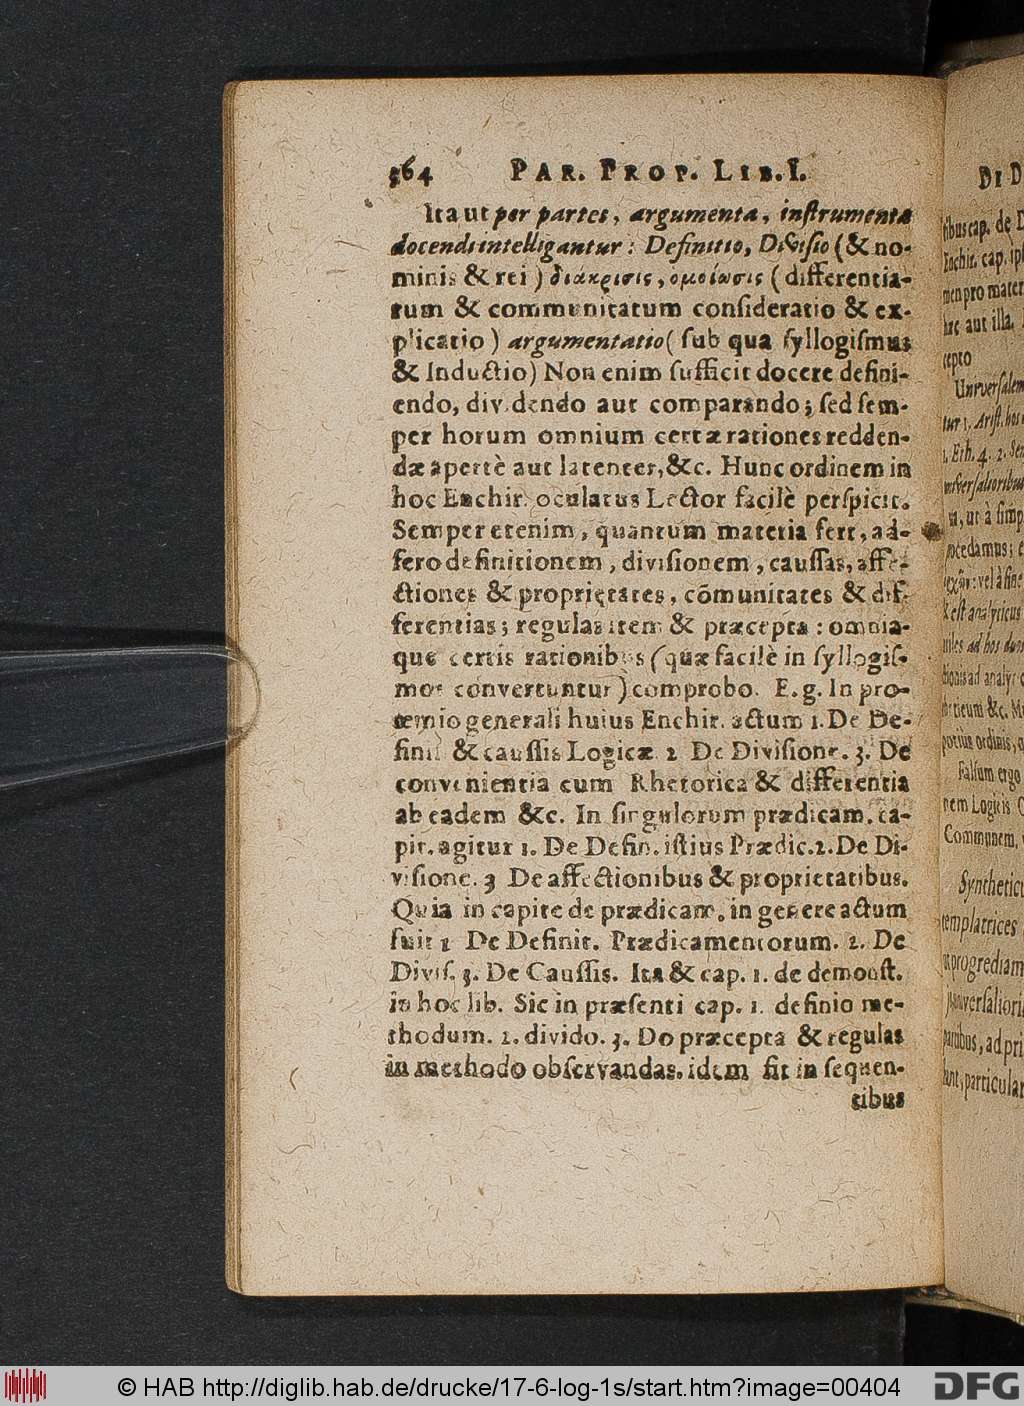 364 PAR. PROP. LIB. I.
Ita ut per partes, argumenta, inſtrumenta
docendi intelligantur: Definitio, Diviſio (& no-
minis & rei) διάκρισις, ομοίωσις (differentia-
rum & communitatum conſideratio & ex-
plicatio) argumentatio (ſub qua ſyllogiſmus
& Inductio) Non enim ſufficit docere defini-
endo, dividendo aut comparando; ſed ſem-
per horum omnium certæ rationes redden-
dæ apertè aut latenter, &c. Hunc ordinem in
hoc Enchir. oculatus Lector facilè perſpicit.
Semper etenim, quantum materia fert, ad-
fero definitionem, diviſionem, cauſſas, affe-
ctiones & proprietates, cõmunitates & dif-
ferentias; regulas item & præcepta: omnia-
que certis rationibus (quæ facilè in ſyllogiſ-
mos convertuntur) comprobo. E. g. In pro-
œmio generali huius Enchir. actum 1. De De-
finit. & cauſſis Logicæ 2 De Diviſione. 3. De
convenientia cum Rhetorica & differentia
ab eadem &c. In ſingulorum prædicam. ca-
pit. agitur 1. De Defin. iſtius Prædic. 2. De Di-
viſione. 3 De affectionibus & proprietatibus.
Quia in capite de prædicam. in genere actum
fuit 1 De Definit. Prædicamentorum. 2. De
Diviſ. 3. De Cauſſis. Ita & cap. 1. de demonſt.
in hoc lib. Sic in præſenti cap. 1. definio me-
thodum. 2. divido. 3. Do præcepta & regulas
in methodo obſervandas. idem fit in ſequen-
tibus
DI D
tibus cap. de D
Enchir. cap. ipſ
men pro mater
hac aut illa.
cepto
Univerſalem
tur 1. Ariſt. hos
1. Eth. 4. 2. Sen
univerſalioribus
ut à ſimp
procedamus; e
vel à fine
& eſt analyticus
ad hos duos
ad analy
&c. M
potius ordinis, q
Falſum ergo
nem Logicis C
Communem,
Synthetic
templatrices
ut progrediam
univerſaliori
partibus, ad pri
ſunt, particular
© HAB http://diglib.hab.de/drucke/17-6-log-1s/start.htm?image=00404
DFG